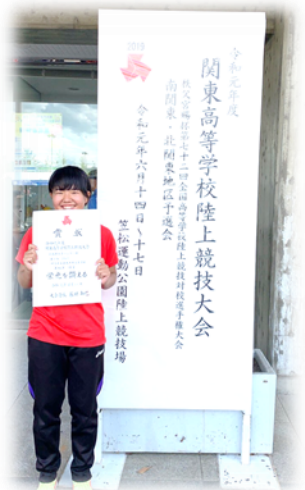 2019
令和元年度
関東高等学校陸上競技大会
秩父宮賜杯第七十二回全国高等学校陸上競技対校選手権大会
南関東・北関東地区予選会
令和元年六月十四日~十七日
笠松運動公園陸上競技場
賞状
栄光を讃える